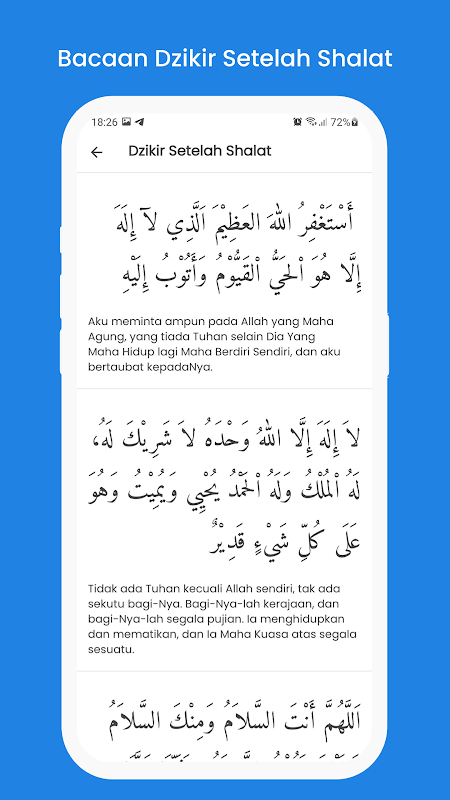 Bacaan Dzikir Setelah Shalat
18:26
72%
Dzikir Setelah Shalat
أَسْتَغْفِرُ اللهَ العَظِيْمَ اَلَّذِي لآ إِلَهَ
إِلَّا هُوَ اْلحَيُّ اْلقَيُّوْمُ وَأَتُوْبُ إِلَيْهِ
Aku meminta ampun pada Allah yang Maha
Agung, yang tiada Tuhan selain Dia Yang
Maha Hidup lagi Maha Berdiri Sendiri, dan aku
bertaubat kepadaNya.
لاَ إِلَهَ إِلَّا اللهُ وَحْدَهُ لاَ شَرِيْكَ لَهُ،
لَهُ اْلمُلْكُ وَلَهُ اْلحَمْدُ يُحْيِي وَيُمِيْتُ وَهُوَ
عَلَى كُلِّ شَيْءٍ قَدِيْرٌ
Tidak ada Tuhan kecuali Allah sendiri, tak ada
sekutu bagi-Nya. Bagi-Nya-lah kerajaan, dan
bagi-Nya-lah segala pujian. Ia menghidupkan
dan mematikan, dan Ia Maha Kuasa atas segala
sesuatu.
اَللَّهُمَّ أَنْتَ السَّلاَمُ وَمِنْكَ السَّلاَمُ